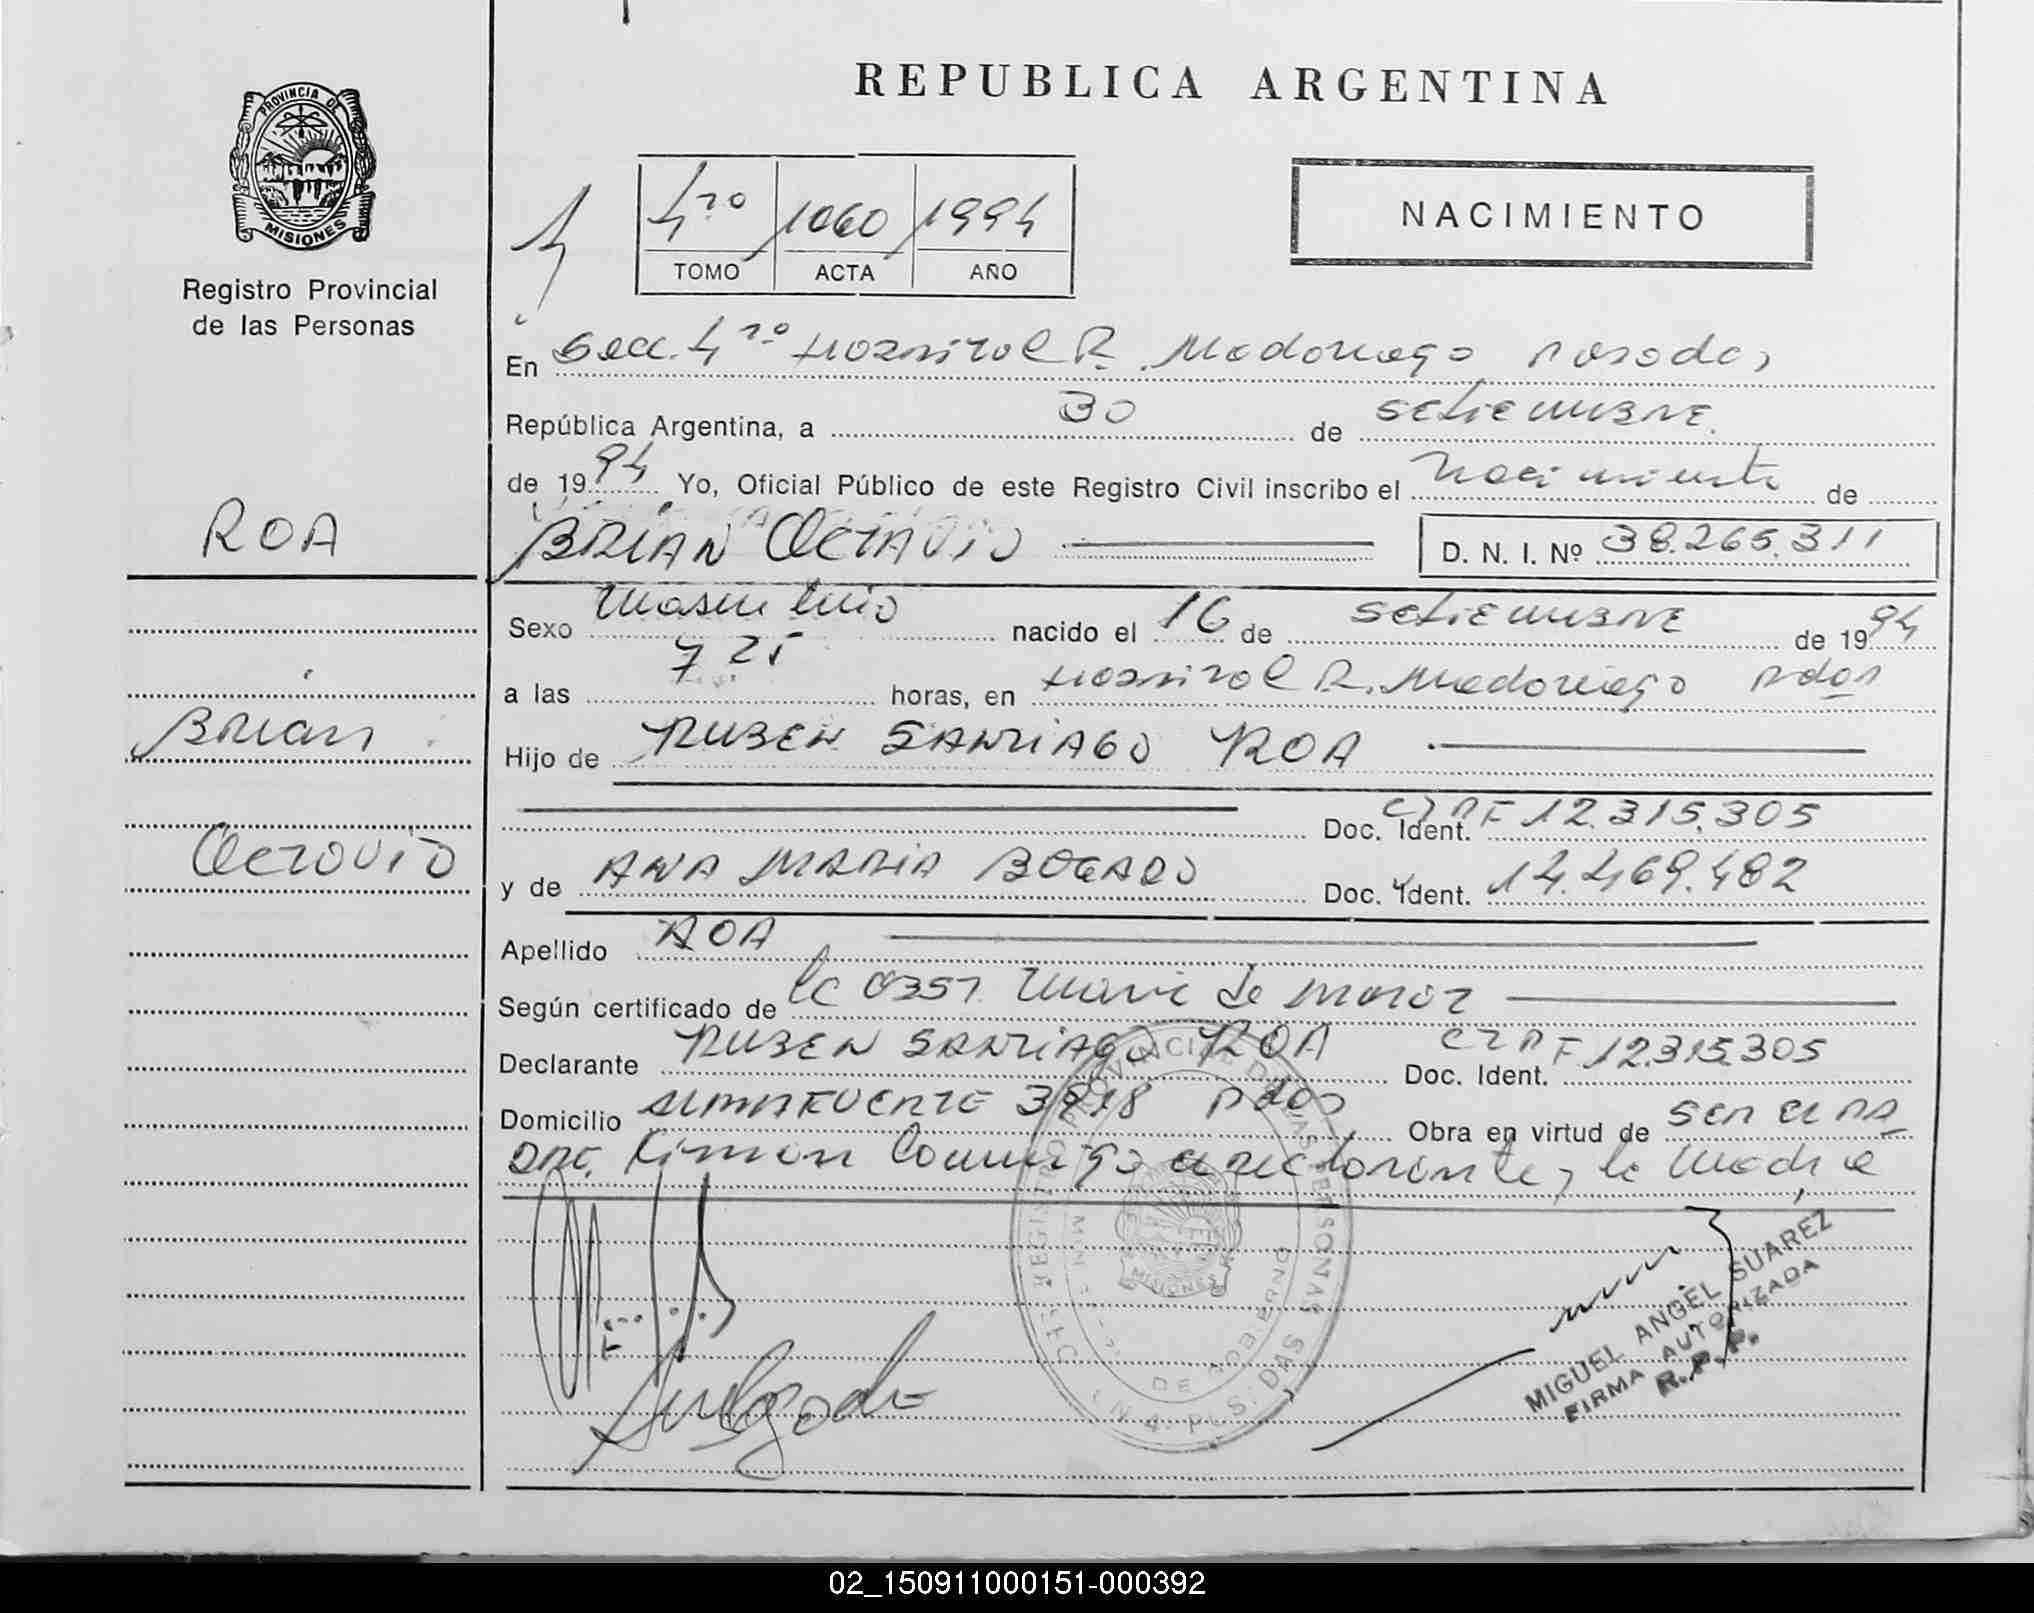 REPUBLICA ARGENTINA
PROVINCIA DE
MISIONES
Registro Provincial
de las Personas
4ro 1060 1994
TOMO ACTA AÑO
NACIMIENTO
En Secc. 4ro Hospital R. Madariaga Posadas
República Argentina, a 30 de setiembre.
de 1994 Yo, Oficial Público de este Registro Civil inscribo el Nacimiento de
ROA
BRIAN OCTAVIO D. N. I. Nº 38.265.311
Sexo Masculino nacido el 16 de setiembre de 1994
a las 7 25 horas, en Hospital R. Madariaga Pdas
Brian
Hijo de RUBEN SANTIAGO ROA
Doc. Ident. 12.315.305
Octavio
y de ANA MARIA BOGADO Doc. Ident. 14.469.482
Apellido ROA
Según certificado de la
Declarante RUBEN SANTIAGO ROA Doc. Ident. 12.315.305
Domicilio Pdas Obra en virtud de ser el pa
dre. Firman conmigo el declarante y la madre
REGISTRO PROVINCIAL DE LAS PERSONAS
MISIONES
DE GOBIERNO
MIGUEL ANGEL SUAREZ
FIRMA AUTORIZADA
R.P.P.
02_150911000151-000392